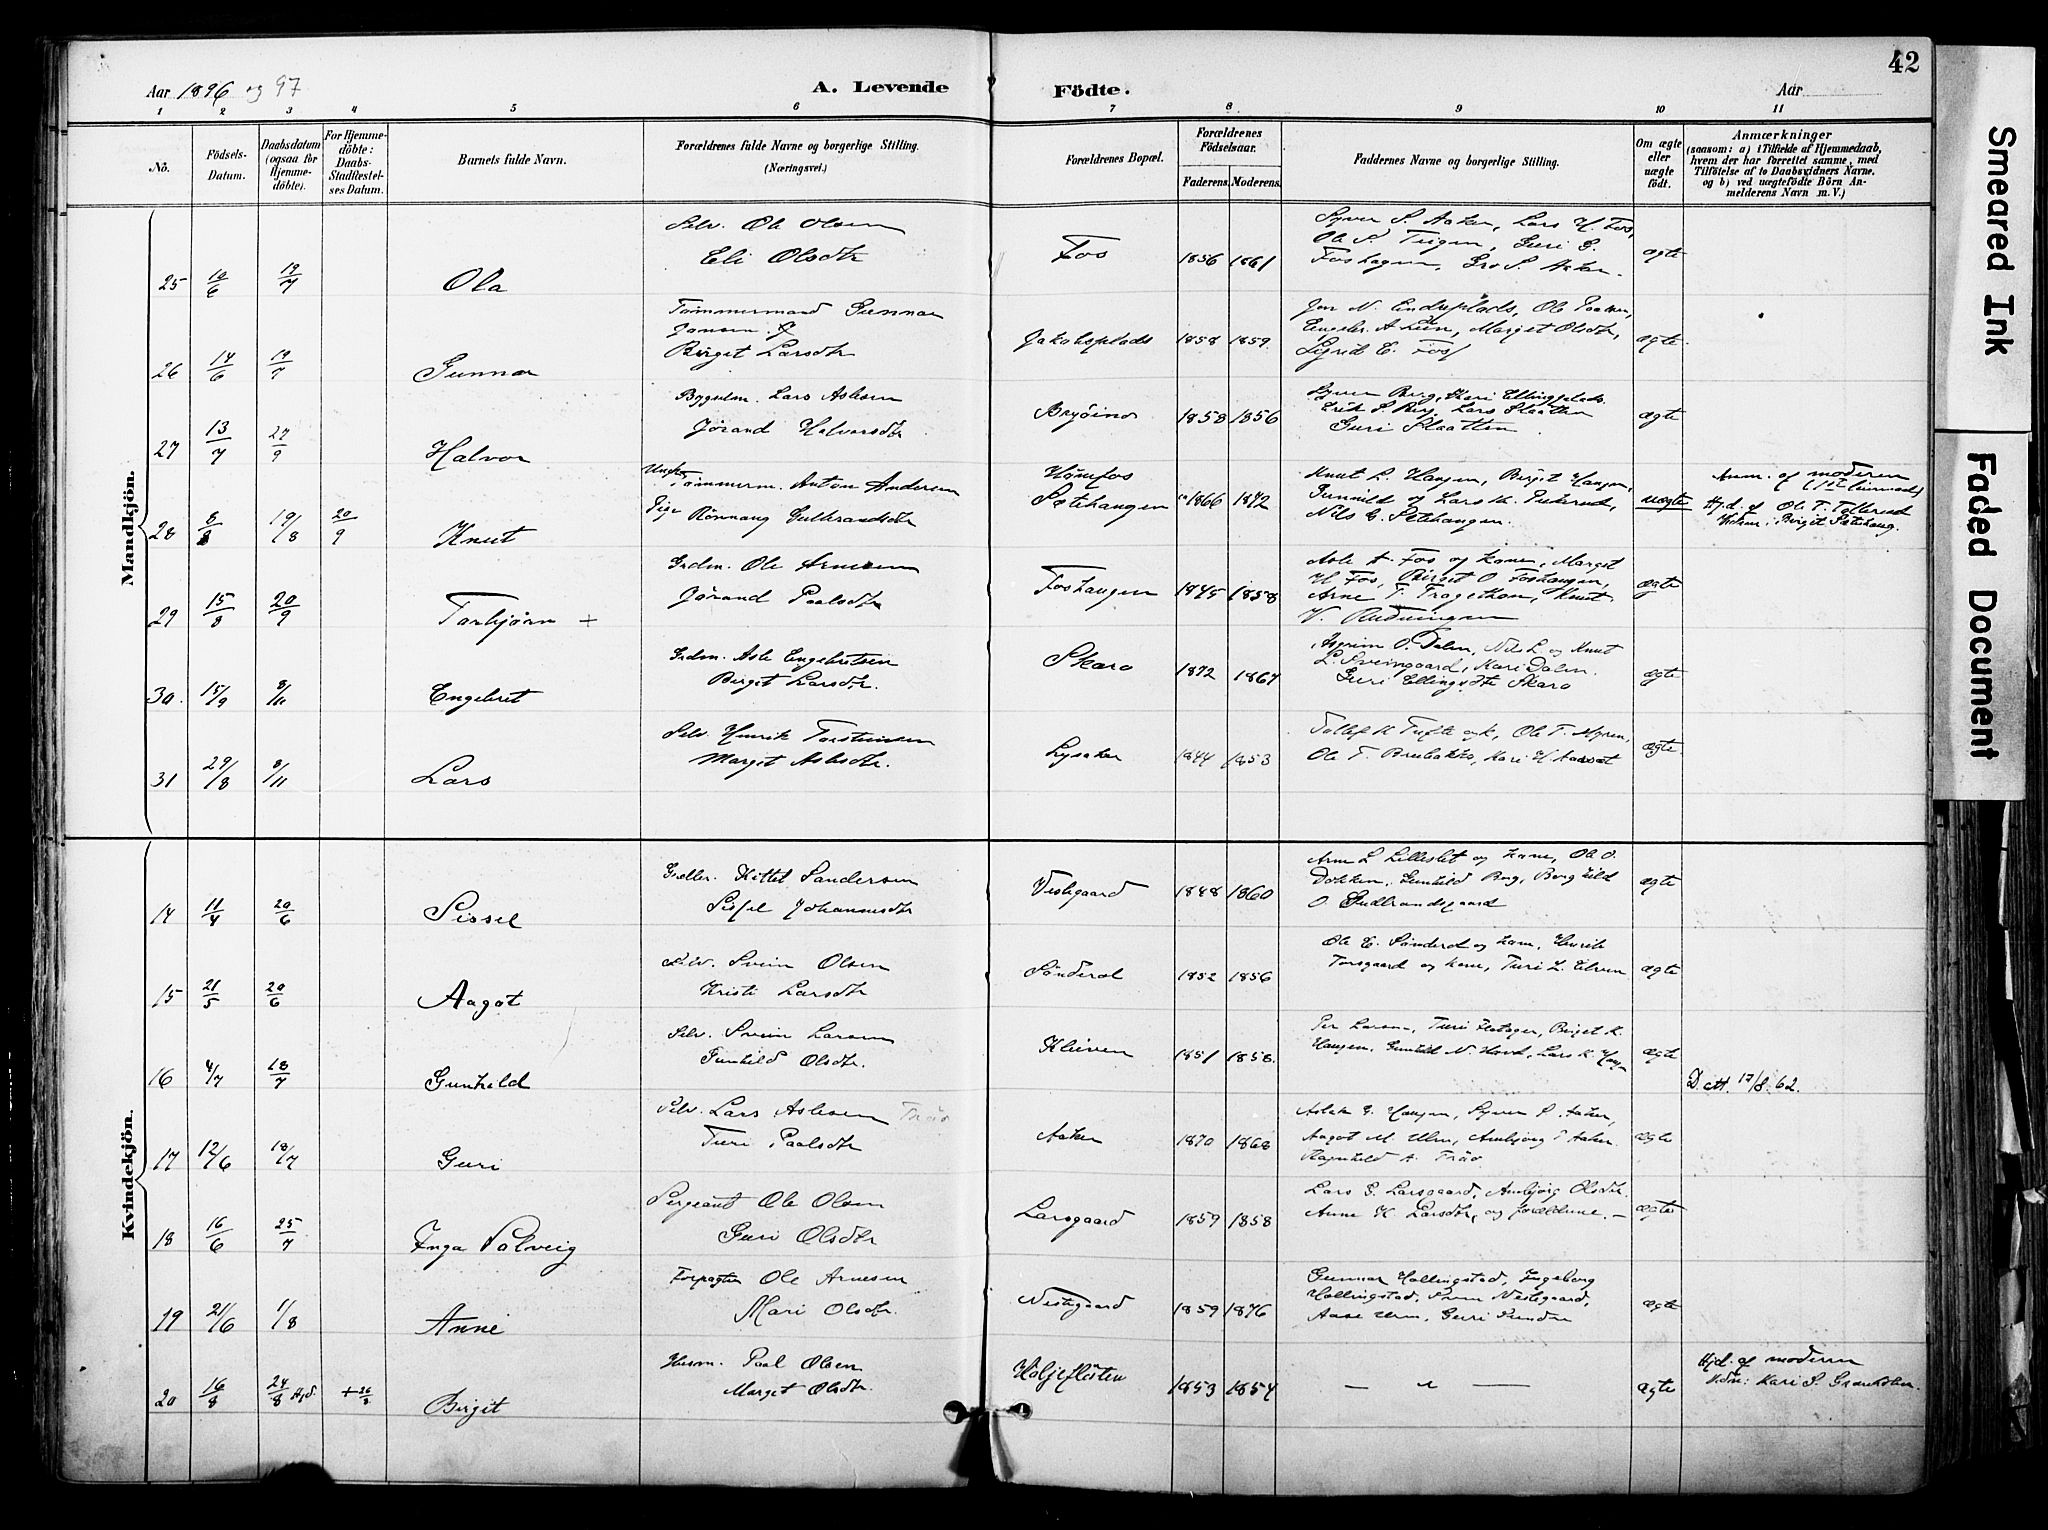 42
Aar 1896 og 97
A. Levende Födte.
Aar
1 2 3 4 5 6 7 8. 9 10 11
No.
Födsels-Datum.
Daabsdatum (ogsaa for Hjemme-döbte).
For Hjemme-döbte: Daabs-Stadfæstel-ses Datum.
Barnets fulde Navn.
Forældrenes fulde Navne og borgerlige Stilling.
(Næringsvei.)
Forældrenes Bopæl.
Forældrenes Födselsaar.
Faderens. Moderens.
Faddernes Navne og borgerlige Stilling.
Om ægte eller uægte födt.
Anmærkninger
(saasom: a) i Tilfælde af Hjemmedaab, hvem der har forrettet samme, med Tilföielse af to Daabsvidners Navne. og b) ved uægtefödte Börn An-melderens Navn m. V.)
Mandkjön.
25 10/6 19/7 Ola
Selv. Ole Olsen
Eli Olsdtr
Fos 1856 1861
Syver S. Aaker, Lars H. Fos,
Ole S. Trigen, Guri G.
Foshagen, Gro S. Aaker.
ægte
26 14/6 19/7 Gunnar
Tømmermand Gunnar
Jansen
Birget Larsdtr
Jakobsplads 1858 1859.
Jon N. Endreplads, Ole
Margit Olsdtr,
Sigrid E. Fos
ægte.
27 13/7 27/9 Halvor
Bygselm. Lars Aslesen
Jørand Halvorsdtr
1858 1856
Syver Berg, Kari Ellingplads.
Erik S. Berg, Lars Slaatten
Guri Slaatten.
ægte
28 8/8 19/8 20/9 Knut
Ungkar Tømmerm. Anton Andersen
Pige Rønnaug Gulbrandsdtr
Hønefos
Sætehaugen 1866 1872
Knut L. Haugen, Birgit Haugen,
Gunhild og Lars K.
Nils G. Sætehaugen.
uægte
Anm. af moderen
Hjd. af Ole T. Tollerud
Birget Sætehaug.
29 15/8 20/9 Torbjørn +
Grdm. Ole Arnesen
Jørand Paalsdtr
Foshaugen 1845 1858
Asle A. Fos og kone, Margit
H. Fos, Birget O. Foshaugen,
Arne T. Tragethon, Knut
V. Rudningen
ægte
30. 15/9 8/11 Engebret
Grdm. Asle Engebretsen
Birget Larsdtr.
Skaro 1872 1867
Asgrim O. Dalen, Nils L og Knut
L. Sveingaard, Kari Dalen.
Guri Ellingsdtr Skaro
ægte
31 29/8 8/11 Lars
Selv. Henrik Torsteinsen
Margit Aslesdtr.
Lysaker 1844 1853
Tollef K Tufte og k, Ole T. Myren,
Ole T. Brubakke, Kari H.
ægte
Kvindekjön.
14 11/4 20/6 Sissel
Kittel Sandersen
Sissel Johannesdtr
Vestegaard 1848 1860
Arne L Lilleslet og kone, Ole O.
Dokken, Gunhild Berg, Borghild
O. Gudbrandsgaard
ægte
15 21/5 20/6 Aagot
Selv. Svein Olsen
Kristi Larsdtr
Sønderol 1852 1856
Ole E. Sønderol og kone, Henrik
Torsgaard og kone, Turi L.
ægte
16 4/7 18/7 Gunhild
Selv. Svein Larsen
Gunhild Olsdtr.
Kleiven 1851 1858.
Per Larsen, Turi Flatager, Birget K.
Haugen, Gunhild N. Hovd, Lars K. Haugen
ægte
D. att. 17/8. 62.
17 12/6 18/7 Guri
Selv. Lars Aslesen Trøo
Turi Paalsdtr
Aaker 1870 1868
Aslak E. Haugen, Syver P. Aaker,
Aagot M. Ulm, Ambjørg T Aaker
Ragnhild A. Trøo
ægte
18 16/6 25/7 Inga Solveig
Sergeant Ole Olsen
Guri Olsdtr
Larsgaard 1859 1858
Lars G. Larsgaard, Ambjørg Olsdtr.
Anne K. Larsdtr, og forældrene. —
ægte
19 21/6 1/8 Anne
Forpagter Ole Arnesen
Mari Olsdtr.
Nestegaard 1859 1876
Gunnar Hallingstad, Ingeborg
Hallingstad, Svein Nestegaard,
Aase Ulm, Guri Sundre
ægte
20 16/8 24/8 Hjd. + 26/8 Birgit
Husm. Paal Olsen
Margit Olsdtr.
1853 1854
— " —
ægte
Hjd. af moderen
Vidn: Kari S.
Smeared Ink
Faded Document